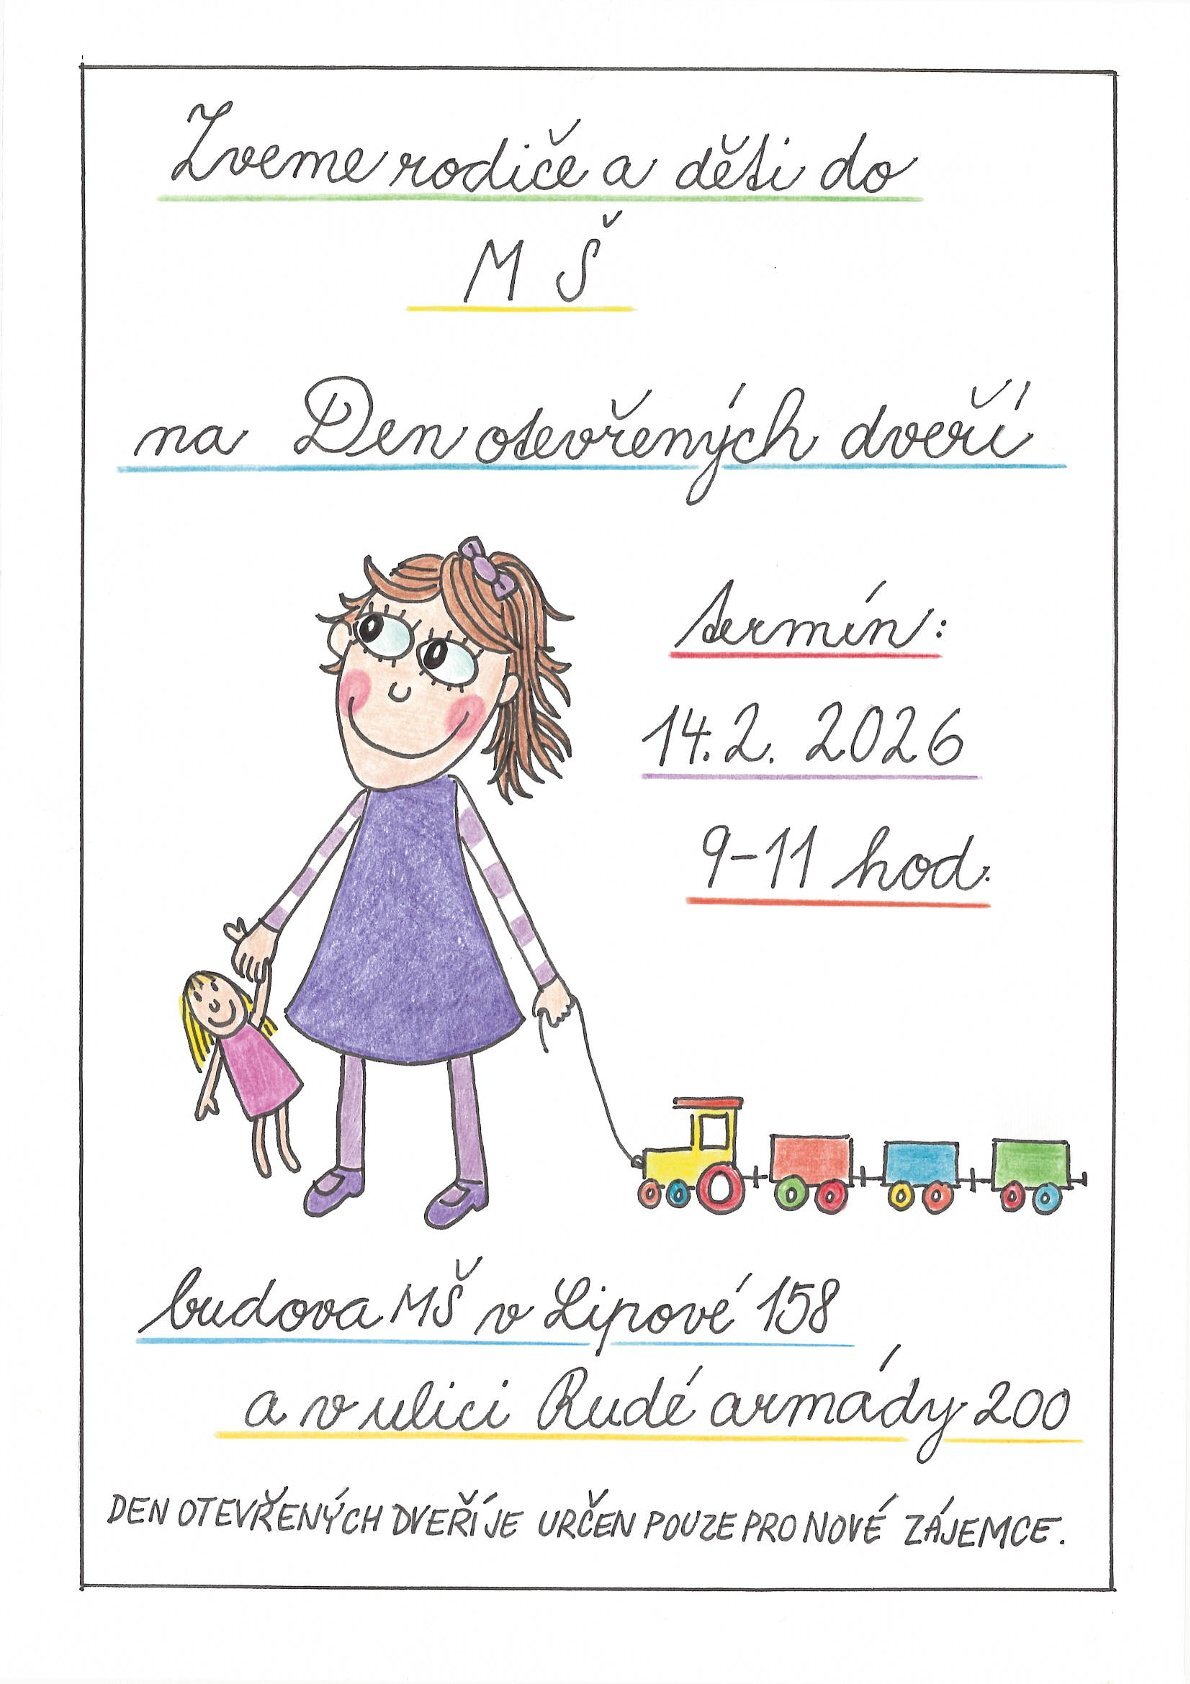 Zveme rodiče a děti do
M Š
na Den otevřených dveří
termín:
14. 2. 2026
9-11 hod.
budova MŠ v Lipové 158
a v ulici Rudé armády 200
DEN OTEVŘENÝCH DVEŘÍ JE URČEN POUZE PRO NOVÉ ZÁJEMCE.